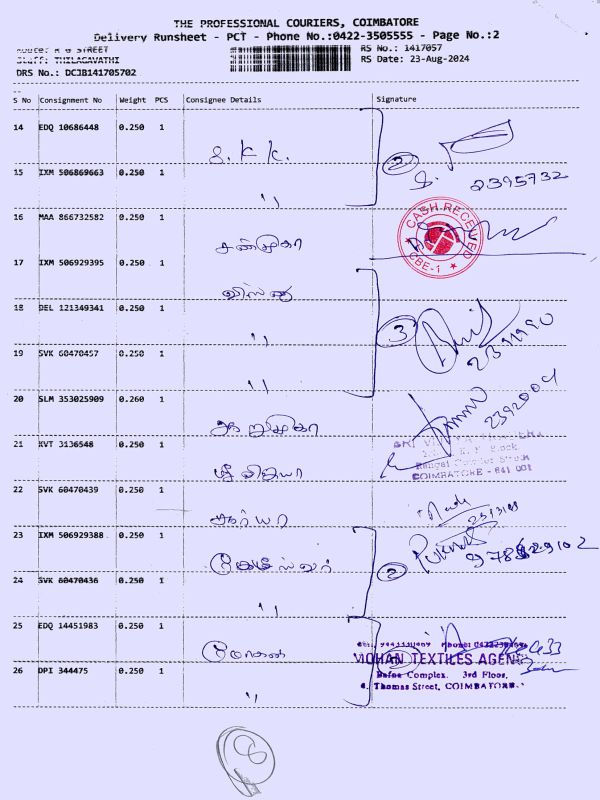 THE PROFESSIONAL COURIERS, COIMBATORE
Delivery Runsheet - PCT - Phone No.:0422-3505555 - Page No.:2
Route: R G STREET
RS No.: 1417057
Staff: THILAGAVATHI
RS Date: 23-Aug-2024
DRS No.: DCJB141705702
S No Consignment No Weight PCS Consignee Details Signature
14 EDQ 10686448 0.250 1
S. K K.
2
15 IXM 506869663 0.250 1
S. 2395732
"
16 MAA 866732582 0.250 1
CASH RECEIVED
CBE-1
சண்முகா
17 IXM 506929395 0.250 1
18 DEL 121349341 0.250 1
"
3
19 SVK 60470457 0.250 1
"
20 SLM 353025909 0.260 1
2392004
21 XVT 3136548 0.250 1
COIMBATORE - 641 001
ஸ்ரீ விஜயா
22 SVK 60470439 0.250 1
சூர்யா
23 IXM 506929388 0.250 1
2
24 SVK 60470436 0.250 1
"
25 EDQ 14451983 0.250 1
மோகன்
MOHAN TEXTILES AGENC
26 DPI 344475 0.250 1
Bafna Complex. 3rd Floor,
Thomas Street, COIMBATORE.
"